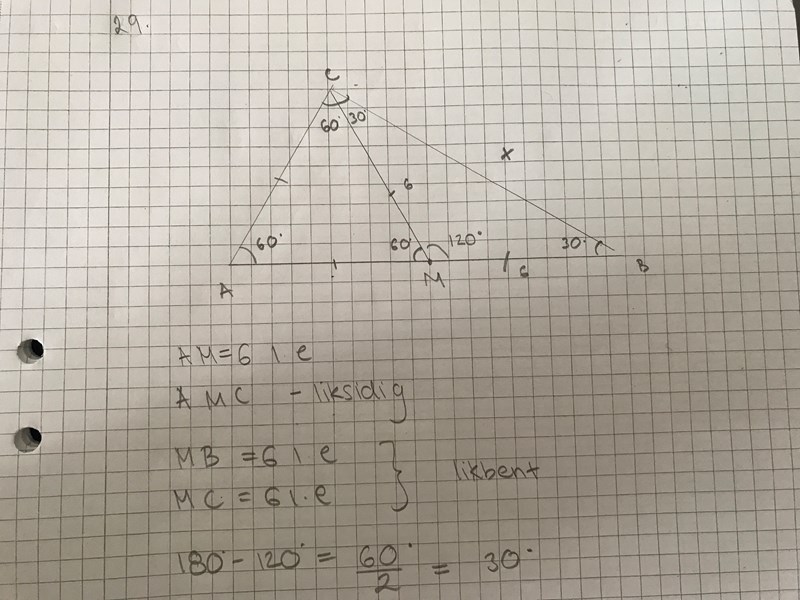 29.
C
60° 30°
x
6
60° 60° 120° 30°
A M 6 B
AM=6 l e
AMC - liksidig
MB = 6 l e
MC = 6 l.e } likbent
180° - 120° = 60°/2 = 30°